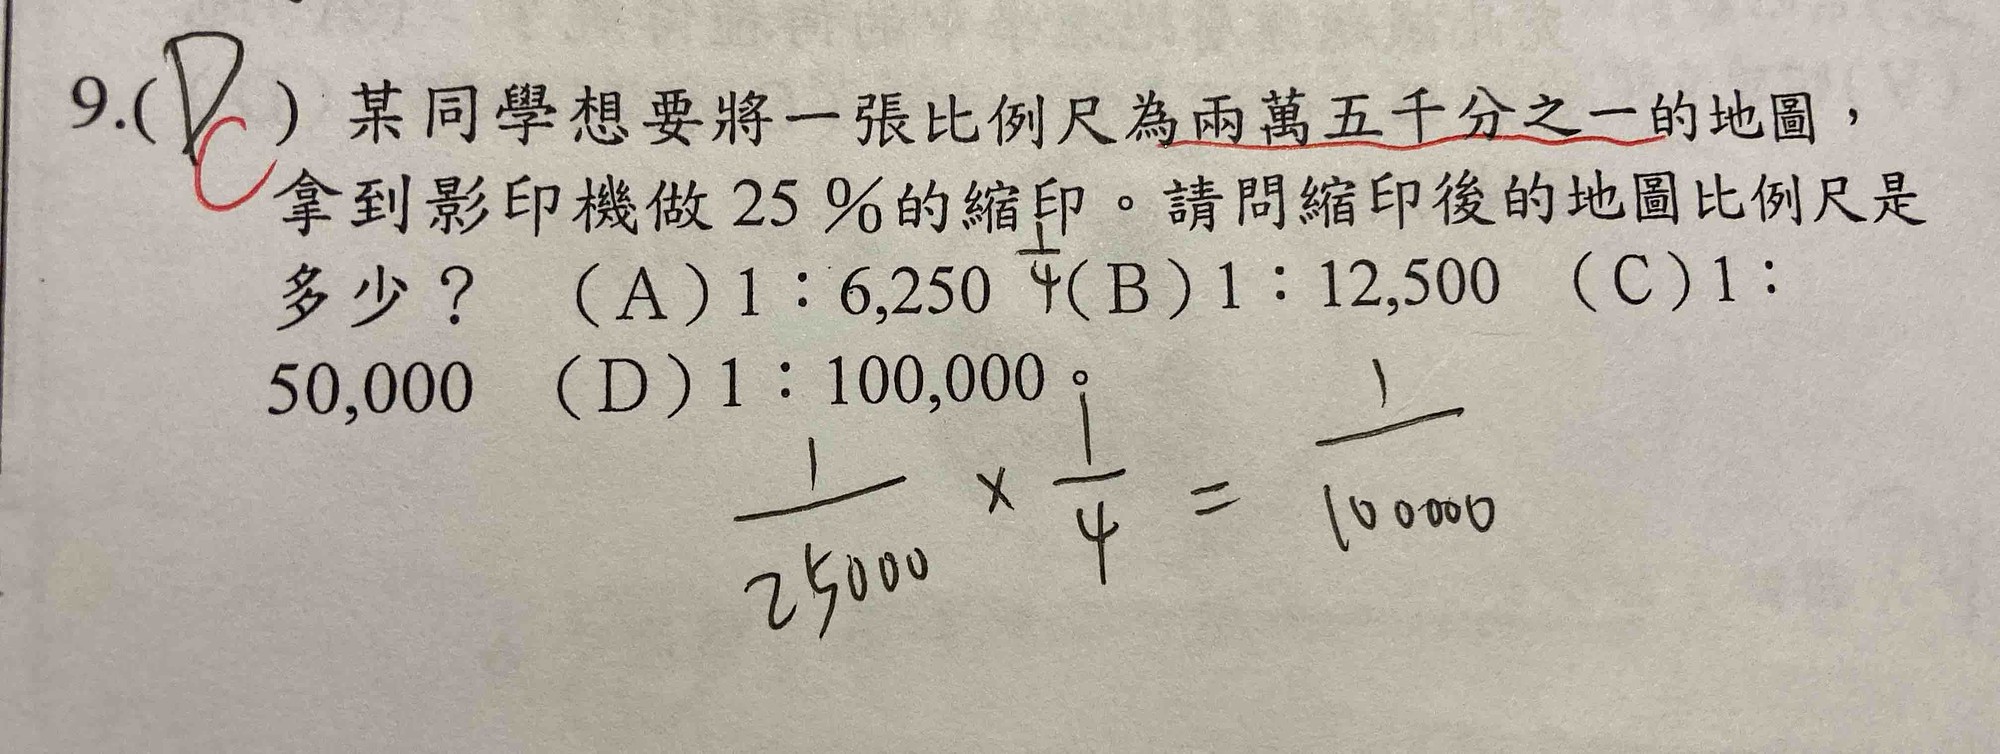 9.(D C) 某同學想要將一張比例尺為兩萬五千分之一的地圖，
拿到影印機做 25 %的縮印。請問縮印後的地圖比例尺是
1/4
多少？ （A）1：6,250 （B）1：12,500 （C）1：
50,000 （D）1：100,000。
1/25000 × 1/4 = 1/100000